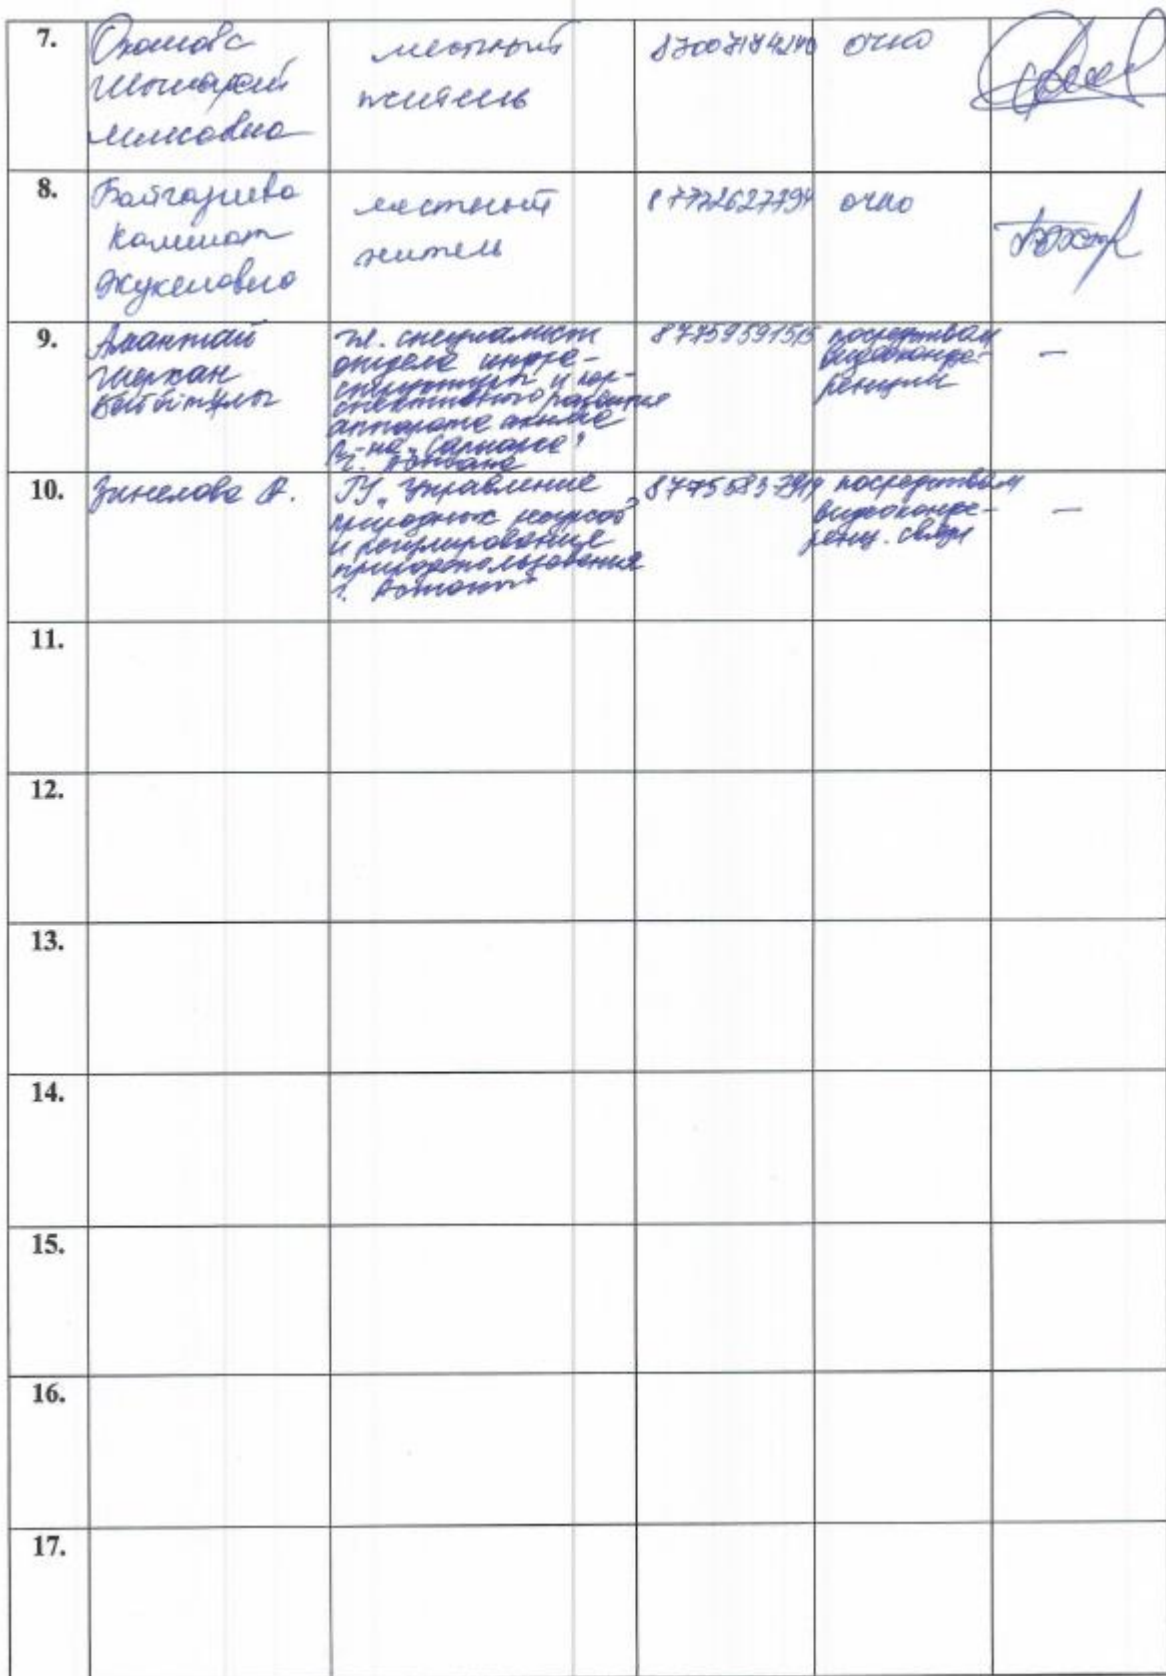 7.
местный
житель
очно
8.
Байгазиева
Камшат
Жукеновна
местный
житель
87772627794
очно
9.
Амантай
Шерхан
гл. специалист
отдела инфра-
структуры и пер-
спективного развития
аппарата акима
р-на "Сарыарка"
г.
87759591515
посредствам
видеоконфе-
ренции
—
10.
Зинелова А.
ГУ "Управление
природных ресурсов
и регулирования
природопользования
г. Астаны"
посредствам
видеоконфе-
ренц. связи
—
11.
12.
13.
14.
15.
16.
17.